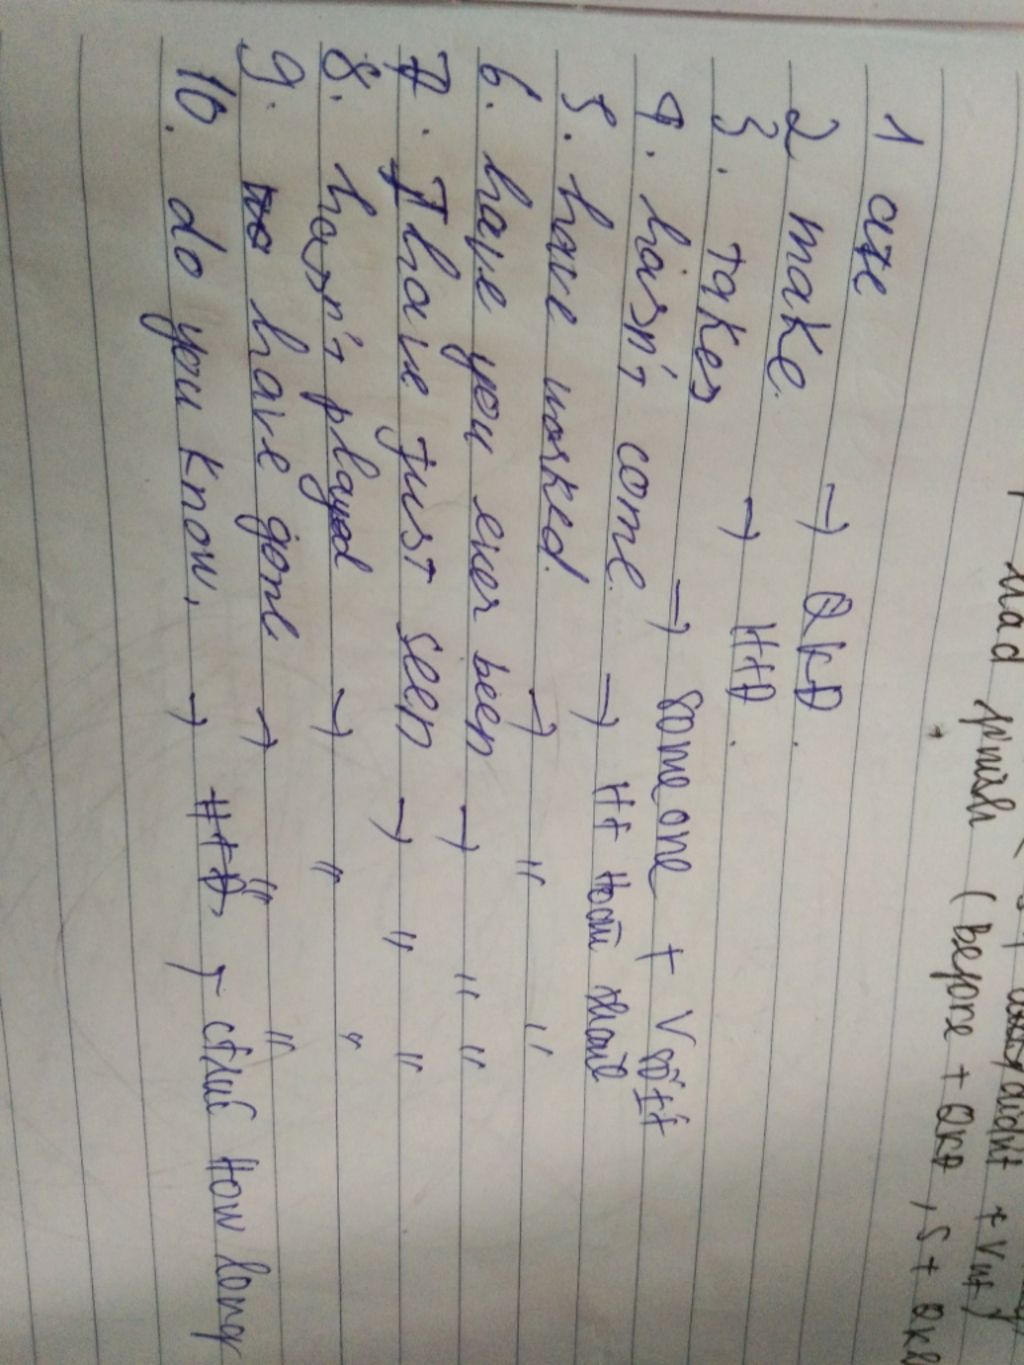 had finish (before + QKĐ, S +
1 ate
2 make → QKĐ.
3. takes → HTĐ.
4. hasn't come → someone + V số ít
5. have worked. → HT hoàn thành
6. have you ever been → " "
7. I have just seen → " "
8. hasn't played → " "
9. have gone → " "
10. do you know. → HTĐ, How long